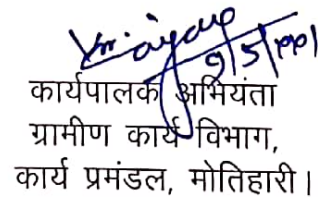 9/5/1991
कार्यपालक अभियंता
ग्रामीण कार्य विभाग,
कार्य प्रमंडल, मोतिहारी।